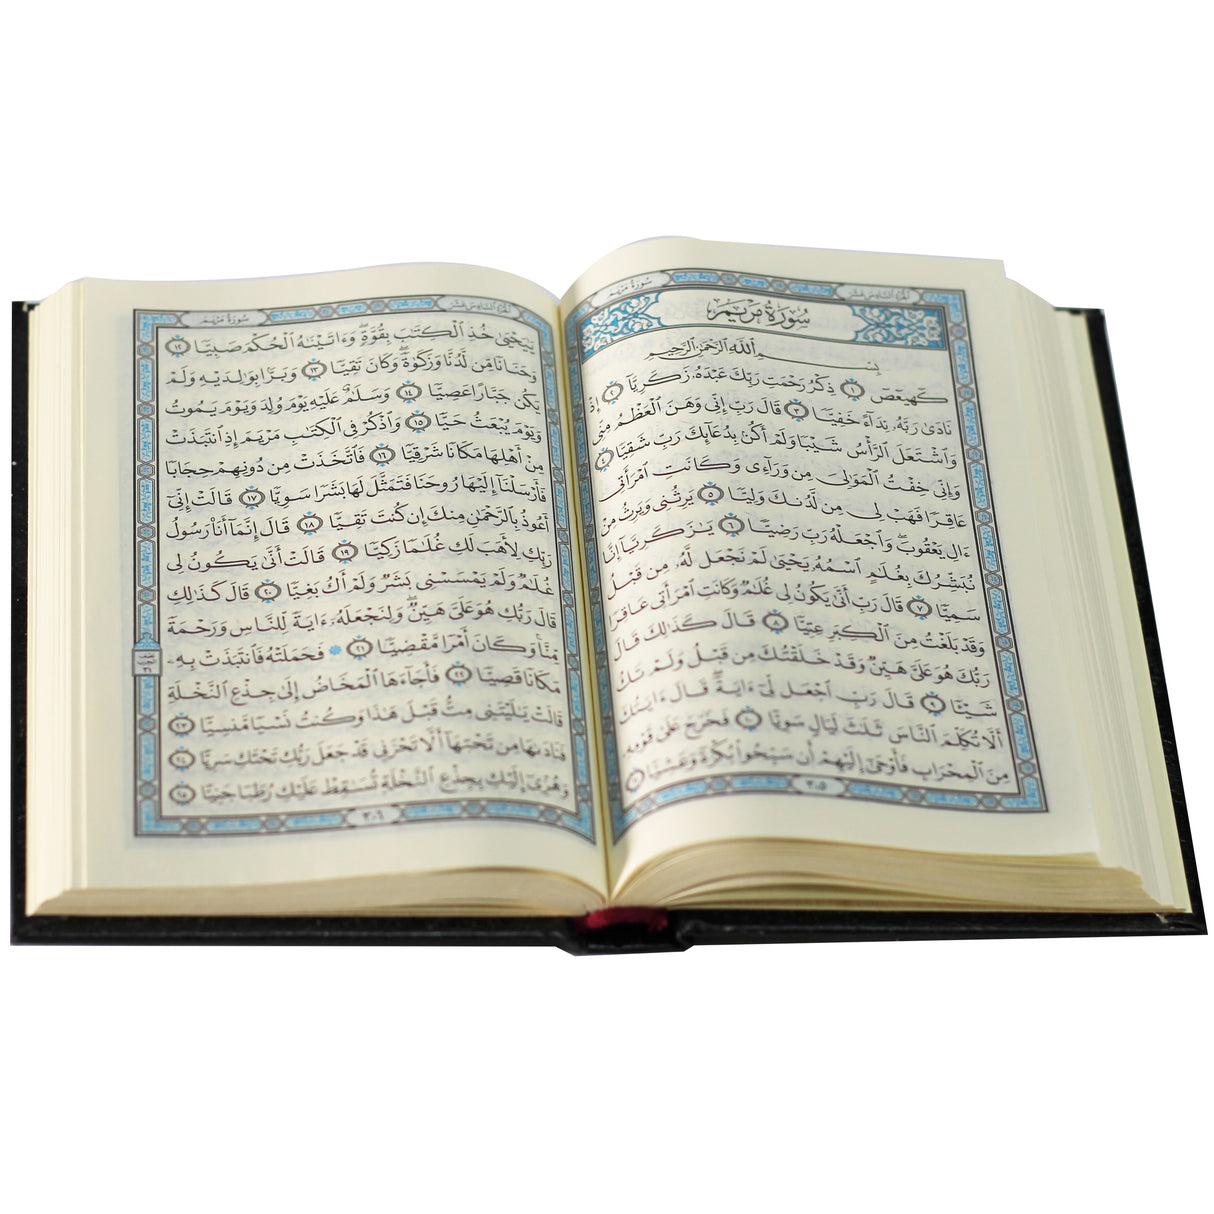 سُورَةُ مَرْيَمَ
الجُزْءُ السَّادِسَ عَشَرَ
سُورَةُ مَرْيَمَ
بِسْمِ ٱللَّهِ ٱلرَّحْمَٰنِ ٱلرَّحِيمِ
كٓهيعٓصٓ ١ ذِكْرُ رَحْمَتِ رَبِّكَ عَبْدَهُۥ زَكَرِيَّآ ٢ إِذْ
نَادَىٰ رَبَّهُۥ نِدَآءً خَفِيًّا ٣ قَالَ رَبِّ إِنِّى وَهَنَ ٱلْعَظْمُ مِنِّى
وَٱشْتَعَلَ ٱلرَّأْسُ شَيْبًا وَلَمْ أَكُنۢ بِدُعَآئِكَ رَبِّ شَقِيًّا ٤
وَإِنِّى خِفْتُ ٱلْمَوَٰلِىَ مِن وَرَآءِى وَكَانَتِ ٱمْرَأَتِى
عَاقِرًا فَهَبْ لِى مِن لَّدُنكَ وَلِيًّا ٥ يَرِثُنِى وَيَرِثُ مِنْ
ءَالِ يَعْقُوبَ ۖ وَٱجْعَلْهُ رَبِّ رَضِيًّا ٦ يَٰزَكَرِيَّآ إِنَّا
نُبَشِّرُكَ بِغُلَٰمٍ ٱسْمُهُۥ يَحْيَىٰ لَمْ نَجْعَل لَّهُۥ مِن قَبْلُ
سَمِيًّا ٧ قَالَ رَبِّ أَنَّىٰ يَكُونُ لِى غُلَٰمٌ وَكَانَتِ ٱمْرَأَتِى عَاقِرًا
وَقَدْ بَلَغْتُ مِنَ ٱلْكِبَرِ عِتِيًّا ٨ قَالَ كَذَٰلِكَ قَالَ
رَبُّكَ هُوَ عَلَىَّ هَيِّنٌ وَقَدْ خَلَقْتُكَ مِن قَبْلُ وَلَمْ تَكُ
شَيْـًٔا ٩ قَالَ رَبِّ ٱجْعَل لِّىٓ ءَايَةً ۚ قَالَ ءَايَتُكَ
أَلَّا تُكَلِّمَ ٱلنَّاسَ ثَلَٰثَ لَيَالٍ سَوِيًّا ١٠ فَخَرَجَ عَلَىٰ قَوْمِهِۦ
مِنَ ٱلْمِحْرَابِ فَأَوْحَىٰٓ إِلَيْهِمْ أَن سَبِّحُوا۟ بُكْرَةً وَعَشِيًّا ١١
٣٠٥
سُورَةُ مَرْيَمَ
الجُزْءُ السَّادِسَ عَشَرَ
يَٰيَحْيَىٰ خُذِ ٱلْكِتَٰبَ بِقُوَّةٍ ۖ وَءَاتَيْنَٰهُ ٱلْحُكْمَ صَبِيًّا ١٢
وَحَنَانًا مِّن لَّدُنَّا وَزَكَوٰةً ۖ وَكَانَ تَقِيًّا ١٣ وَبَرًّۢا بِوَٰلِدَيْهِ وَلَمْ
يَكُن جَبَّارًا عَصِيًّا ١٤ وَسَلَٰمٌ عَلَيْهِ يَوْمَ وُلِدَ وَيَوْمَ يَمُوتُ
وَيَوْمَ يُبْعَثُ حَيًّا ١٥ وَٱذْكُرْ فِى ٱلْكِتَٰبِ مَرْيَمَ إِذِ ٱنتَبَذَتْ
مِنْ أَهْلِهَا مَكَانًا شَرْقِيًّا ١٦ فَٱتَّخَذَتْ مِن دُونِهِمْ حِجَابًا
فَأَرْسَلْنَآ إِلَيْهَا رُوحَنَا فَتَمَثَّلَ لَهَا بَشَرًا سَوِيًّا ١٧ قَالَتْ إِنِّىٓ
أَعُوذُ بِٱلرَّحْمَٰنِ مِنكَ إِن كُنتَ تَقِيًّا ١٨ قَالَ إِنَّمَآ أَنَا۠ رَسُولُ
رَبِّكِ لِأَهَبَ لَكِ غُلَٰمًا زَكِيًّا ١٩ قَالَتْ أَنَّىٰ يَكُونُ لِى
غُلَٰمٌ وَلَمْ يَمْسَسْنِى بَشَرٌ وَلَمْ أَكُ بَغِيًّا ٢٠ قَالَ كَذَٰلِكِ
قَالَ رَبُّكِ هُوَ عَلَىَّ هَيِّنٌ ۖ وَلِنَجْعَلَهُۥٓ ءَايَةً لِّلنَّاسِ وَرَحْمَةً
مِّنَّا ۚ وَكَانَ أَمْرًا مَّقْضِيًّا ٢١ فَحَمَلَتْهُ فَٱنتَبَذَتْ بِهِۦ
مَكَانًا قَصِيًّا ٢٢ فَأَجَآءَهَا ٱلْمَخَاضُ إِلَىٰ جِذْعِ ٱلنَّخْلَةِ
قَالَتْ يَٰلَيْتَنِى مِتُّ قَبْلَ هَٰذَا وَكُنتُ نَسْيًا مَّنسِيًّا ٢٣
فَنَادَىٰهَا مِن تَحْتِهَآ أَلَّا تَحْزَنِى قَدْ جَعَلَ رَبُّكِ تَحْتَكِ سَرِيًّا ٢٤
وَهُزِّىٓ إِلَيْكِ بِجِذْعِ ٱلنَّخْلَةِ تُسَٰقِطْ عَلَيْكِ رُطَبًا جَنِيًّا ٢٥
نصف
الحزب
٣١
٣٠٦